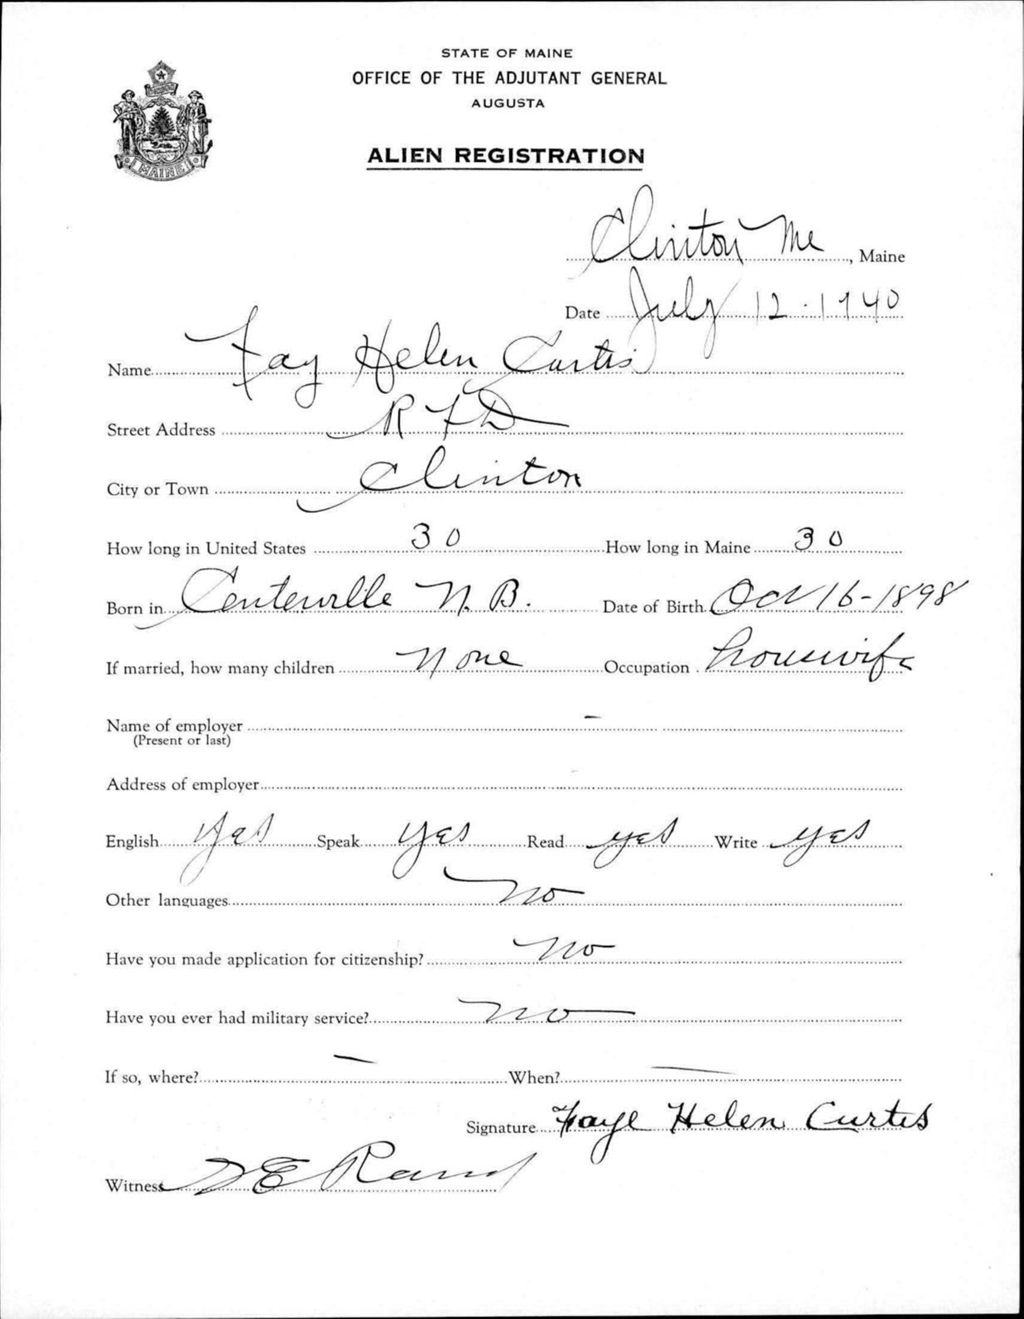 STATE OF MAINE
OFFICE OF THE ADJUTANT GENERAL
AUGUSTA
ALIEN REGISTRATION
MAINE
Clinton Me, Maine
Date July 12-1940
Name Fay Helen Curtis
Street Address R F D
City or Town Clinton
How long in United States 30 How long in Maine 30
Born in Centerville N. B. Date of Birth Oct 16-1898
If married, how many children None Occupation housewife
Name of employer -
(Present or last)
Address of employer
English Yes Speak yes Read yes Write yes
Other languages No
Have you made application for citizenship? No
Have you ever had military service? No
If so, where? - When? -
Signature Faye Helen Curtis
Witness E Rand